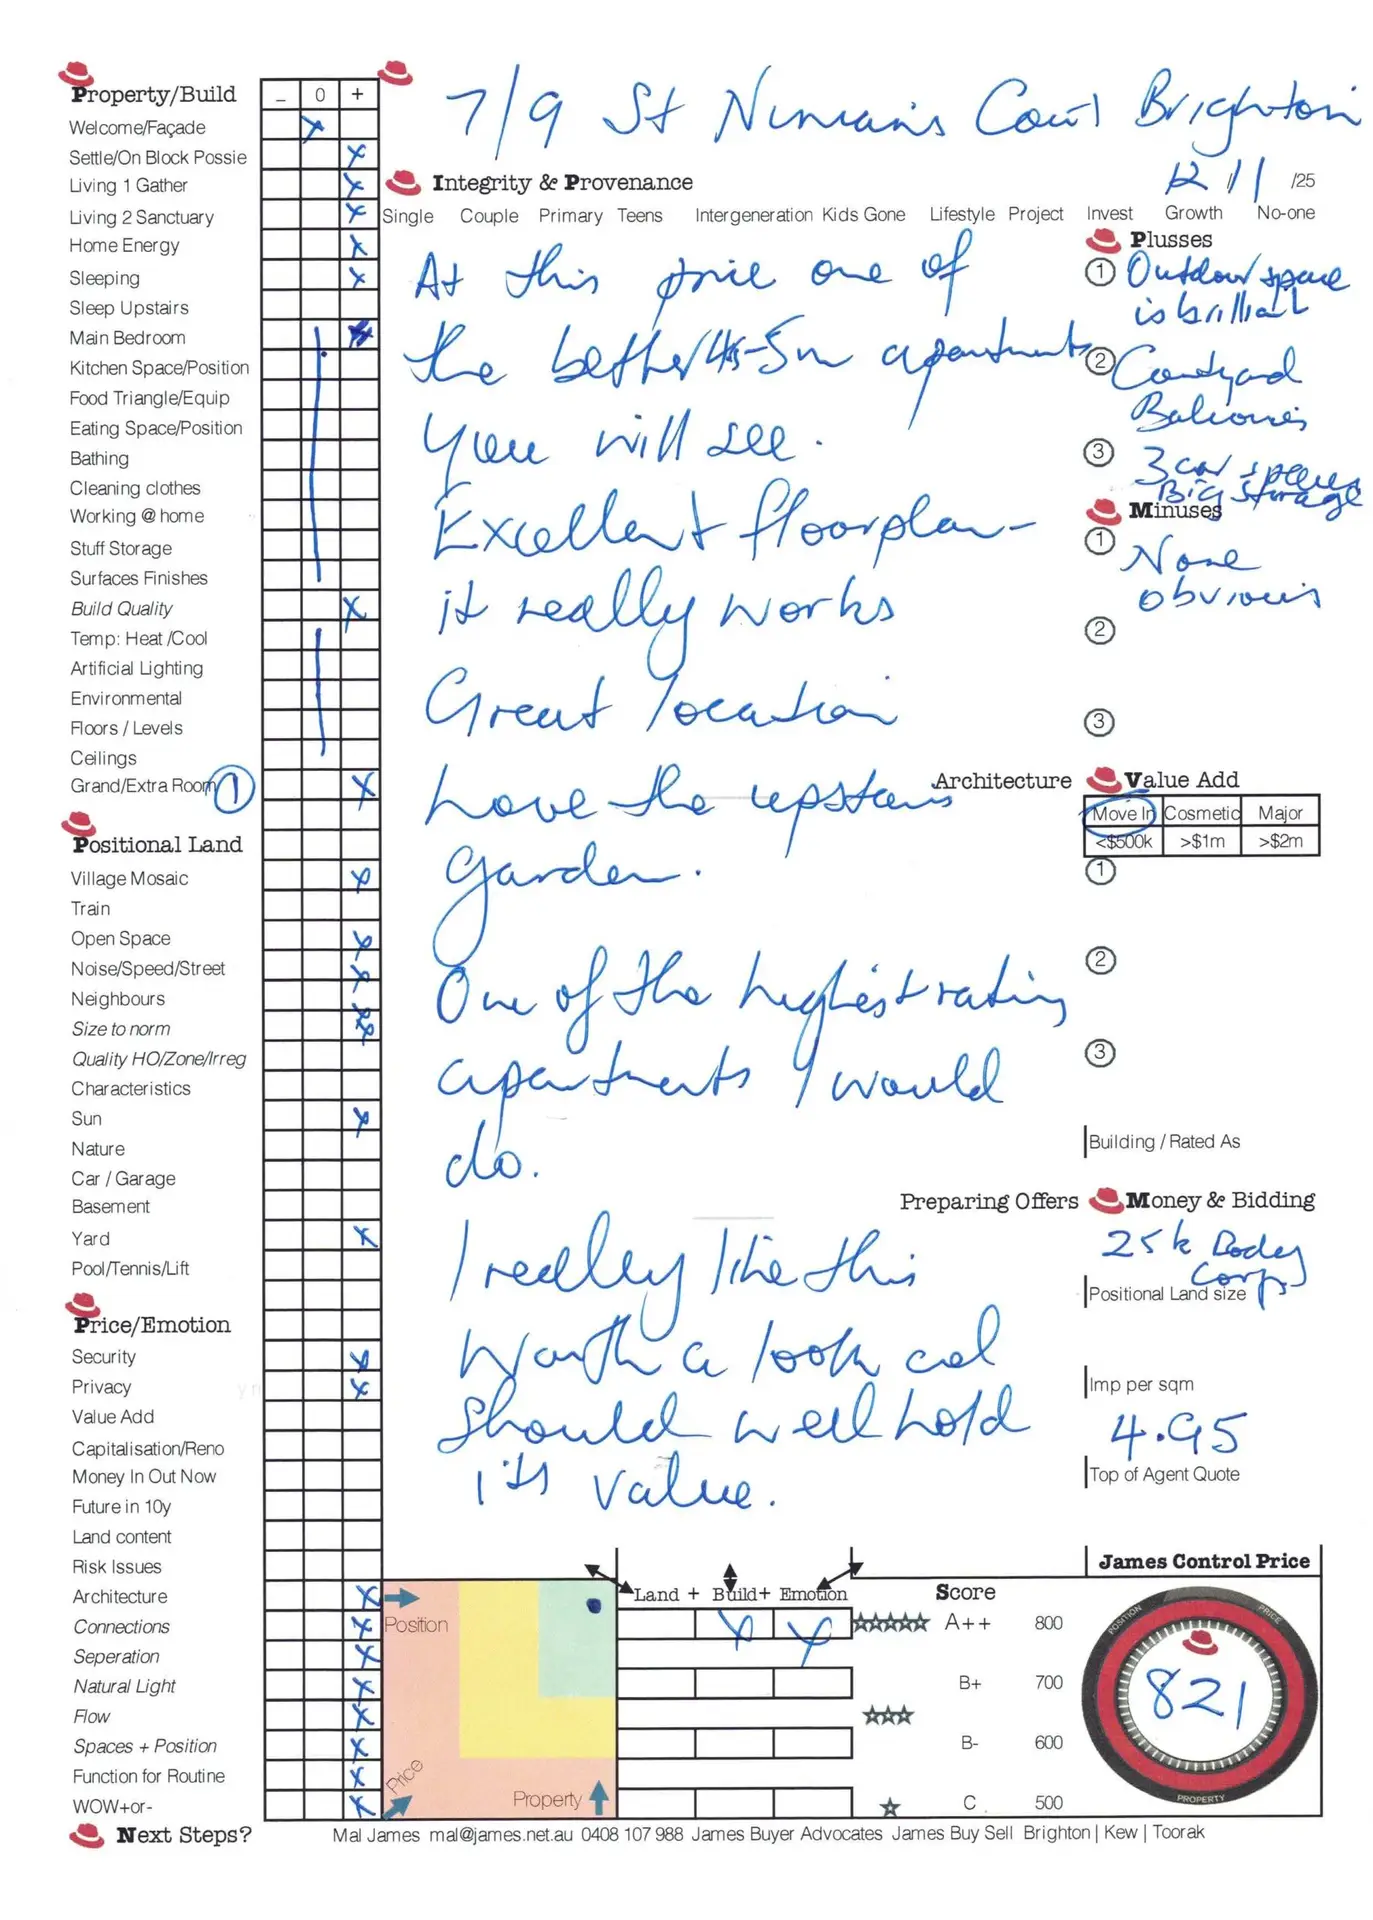 Property/Build
− 0 +
Welcome/Façade
Settle/On Block Possie
Living 1 Gather
Living 2 Sanctuary
Home Energy
Sleeping
Sleep Upstairs
Main Bedroom
Kitchen Space/Position
Food Triangle/Equip
Eating Space/Position
Bathing
Cleaning clothes
Working @ home
Stuff Storage
Surfaces Finishes
Build Quality
Temp: Heat /Cool
Artificial Lighting
Environmental
Floors / Levels
Ceilings
Grand/Extra Room 1
Positional Land
Village Mosaic
Train
Open Space
Noise/Speed/Street
Neighbours
Size to norm
Quality HO/Zone/Irreg
Characteristics
Sun
Nature
Car / Garage
Basement
Yard
Pool/Tennis/Lift
Price/Emotion
Security
Privacy
Value Add
Capitalisation/Reno
Money In Out Now
Future in 10y
Land content
Risk Issues
Architecture
Connections
Seperation
Natural Light
Flow
Spaces + Position
Function for Routine
WOW+or-
Next Steps?
7/9 St Ninians Court Brighton
12/11 /25
Integrity & Provenance
Single Couple Primary Teens Intergeneration Kids Gone Lifestyle Project Invest Growth No-one
At this price one of
the better 4.5-5m apartments
you will see.
Excellent floorplan -
it really works
Great location
Love the upstairs
garden.
One of the highest rating
apartments I would
do.
I really like this
Worth a look and
should well hold
it's value.
Plusses
1 Outdoor space
is brilliant
2 Courtyard
Balconies
3 3 car spaces
Big storage
Minuses
1 None
obvious
2
3
Architecture Value Add
Move In Cosmetic Major
<$500k >$1m >$2m
1
2
3
Building / Rated As
Preparing Offers Money & Bidding
25k Body
Corp
Positional Land size
Imp per sqm
4.95
Top of Agent Quote
James Control Price
POSITION PRICE
821
PROPERTY
Position
Price
Property
Land + Build + Emotion
Score
A++ 800
B+ 700
B- 600
C 500
Mal James mal@james.net.au 0408 107 988 James Buyer Advocates James Buy Sell Brighton | Kew | Toorak